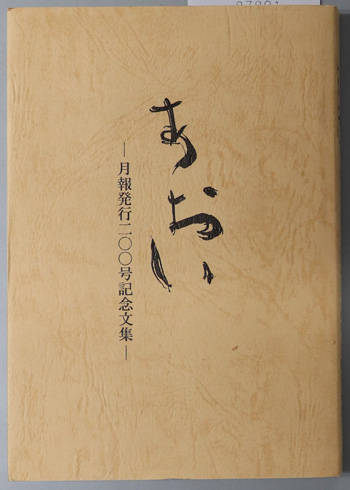 あおい
―月報発行二〇〇号記念文集―